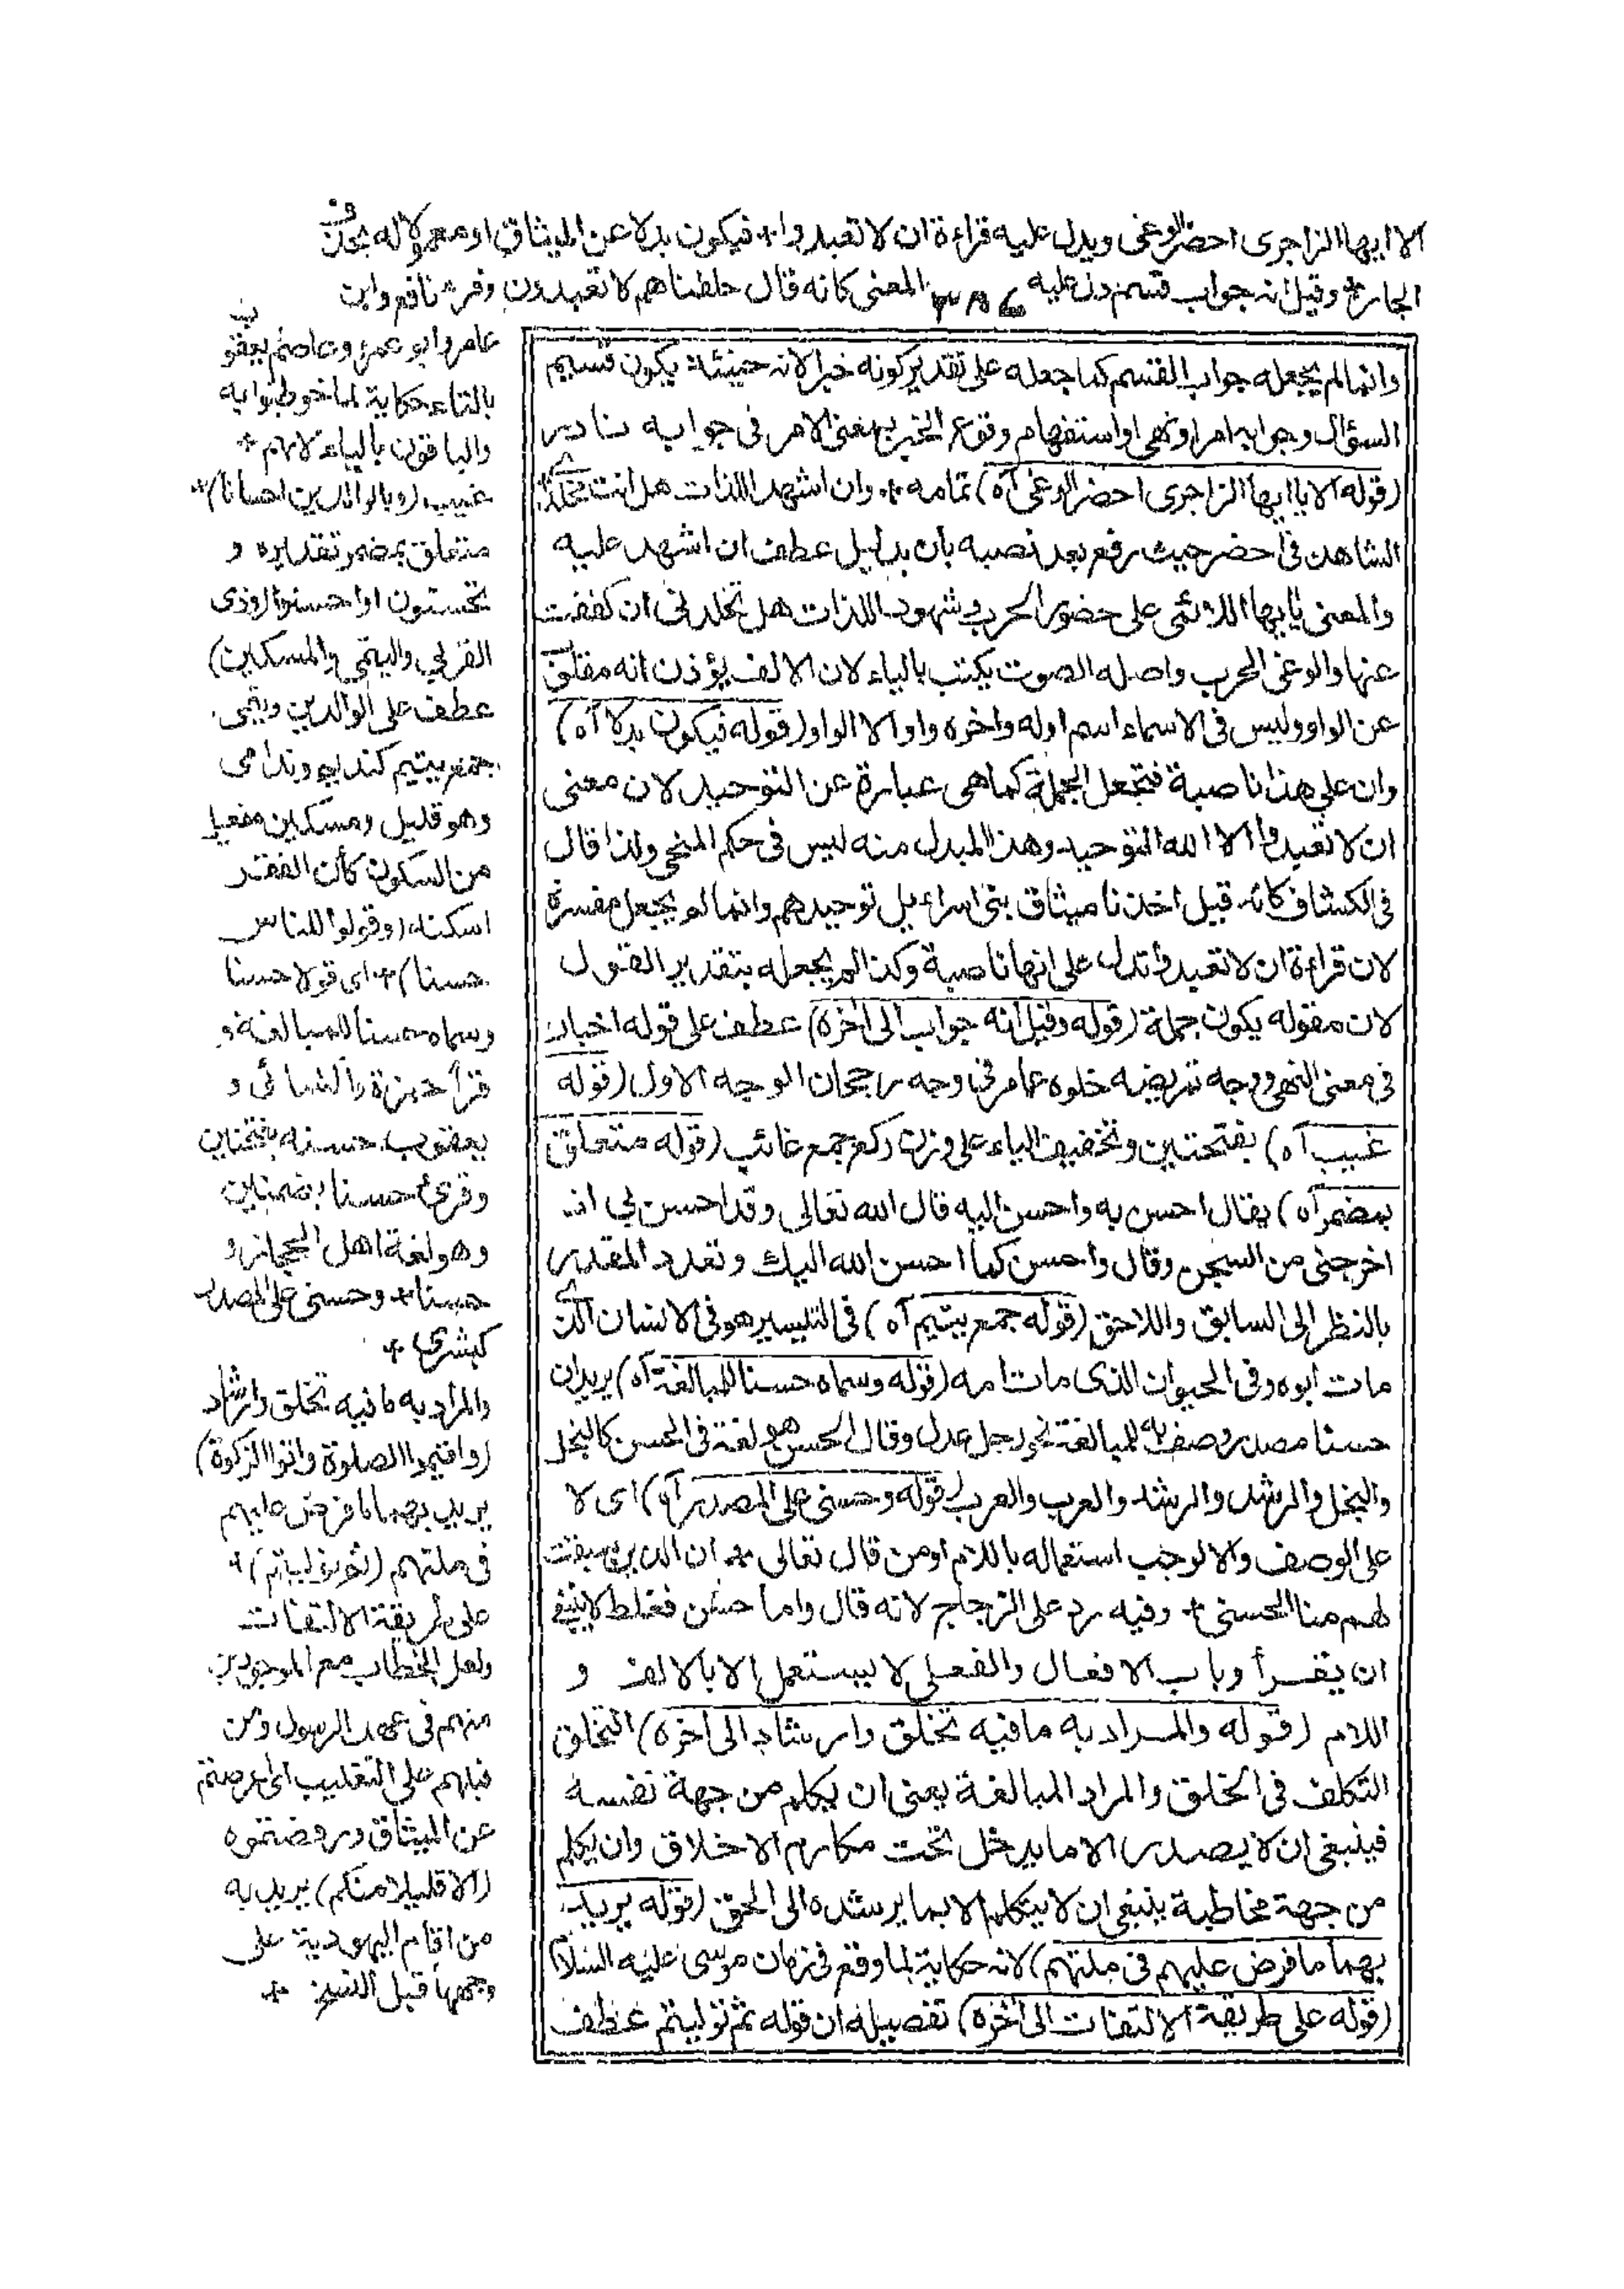 الا ايها الزاجرى احضر الوغى ويدل عليه قراءة ان لا تعبدوا * فيكون بدلا عن الميثاق او معمولا له بحذف
الجار * وقيل انه جواب قسم دل عليه المعنى كانه قال حلفناهم لا تعبدون وقرء نافع وابن
عامر وابو عمرو وعاصم ويعقوب
بالتاء حكاية لما خوطبوا به
والباقون بالياء لانهم *
غيب (وبالوالدين احسانا) *
متعلق بمضمر تقديره و
تحسنون او احسنوا (وذى
القربى واليتمى والمسكين)
عطف على الوالدين ويتمى
جمع يتيم كنديم وندامى
وهو قليل ومسكين مفعيل
من السكون كأن الفقر
اسكنه (وقولوا للناس
حسنا) * اى قولا حسنا
وسماه حسنا للمبالغة و
قرأ حمزة والكسائى و
يعقوب حسنا بفتحتين
وقرئ حسنا بضمتين
وهو لغة اهل الحجاز و
حسنا * وحسنى على المصدر
كبشرى *
والمراد به ما فيه تخلق وارشاد
(واقيموا الصلوة واتوا الزكوة)
يريد بهما ما فرض عليهم
فى ملتهم (ثم توليتم) *
على طريقة الالتفات
ولعل الخطاب مع الموجودين
منهم فى عهد الرسول ومن
قبلهم على التغليب اى اعرضتم
عن الميثاق ورفضتموه
(الا قليلا منكم) يريد به
من اقام اليهودية على
وجهها قبل النسخ *
وانما لم يجعله جواب القسم كما جعله على تقدير كونه خبرا لانه حينئذ يكون قسيم
السؤال وجوابه امر او نهى او استفهام وقوع الخبر بمعنى الامر فى جوابه نادر
(قوله الا يا ايها الزاجرى احضر الوغى آه) تمامه * وان اشهد اللذات هل انت مخلدى
الشاهد فى احضر حيث رفع بعد نصبه بان بدليل عطف ان اشهد عليه
والمعنى يا ايها اللائمى على حضور الحرب وشهود اللذات هل تخلدنى ان كففت
عنها والوغى الحرب واصله الصوت يكتب بالياء لان الالف يؤذن انه مقلوب
عن الواو وليس فى الاسماء اسم اوله واخره واو الا الواو (قوله فيكون بدلا آه)
وان على هذا ناصبة فتجعل الجملة كما هى عبارة عن التوحيد لان معنى
ان لا تعبدوا الا الله التوحيد وهذا المبدل منه ليس فى حكم المنحى ولذا قال
فى الكشاف كانه قيل اخذنا ميثاق بنى اسراءيل توحيدهم وانما لم يجعل مفسرة
لان قراءة ان لا تعبدوا تدل على انها ناصبة وكذا لم يجعله بتقدير القول
لان مقوله يكون جملة (قوله وقيل انه جواب الى اخره) عطف على قوله اخبار
فى معنى النهى ووجه تمريضه خلوه عما مر فى وجه رجحان الوجه الاول (قوله
غيب آه) بفتحتين وتخفيف الياء على وزن ركع جمع غائب (قوله متعلق
بمضمر آه) يقال احسن به واحسن اليه قال الله تعالى وقد احسن بى اذ
اخرجنى من السجن وقال واحسن كما احسن الله اليك وتعدد المقدر
بالنظر الى السابق واللاحق (قوله جمع يتيم آه) فى التيسير هو فى الانسان الذى
مات ابوه وفى الحيوان الذى مات امه (قوله وسماه حسنا للمبالغة آه) يريد ان
حسنا مصدر وصف به للمبالغة نحو رجل عدل وقال الحسن هو لغة فى الحسن كالبخل
والبخل والرشد والرشد والعرب والعرب (قوله وحسنى على المصدر آه) اى لا
على الوصف والا لوجب استعماله باللام او من قال تعالى * ان الذين سبقت
لهم منا الحسنى * وفيه رد على الزجاج لانه قال واما حسنى فغلط لا ينبغى
ان يقرأ وباب الافعال والفعلى لا يستعمل الا بالالف و
اللام (قوله والمراد به مافيه تخلق وارشاد الى اخره) التخلق
التكلف فى الخلق والمراد المبالغة يعنى ان يكلم من جهة نفسه
فينبغى ان لا يصدر الا ما يدخل تحت مكارم الاخلاق وان يكلم
من جهة مخاطبة ينبغى ان لا يتكلم الا بما يرشده الى الحق (قوله يريد
بهما ما فرض عليهم فى ملتهم) لانه حكاية لما وقع فى زمان موسى عليه السلام
(قوله على طريقة الالتفات الى اخره) تفصيله ان قوله ثم توليتم عطف